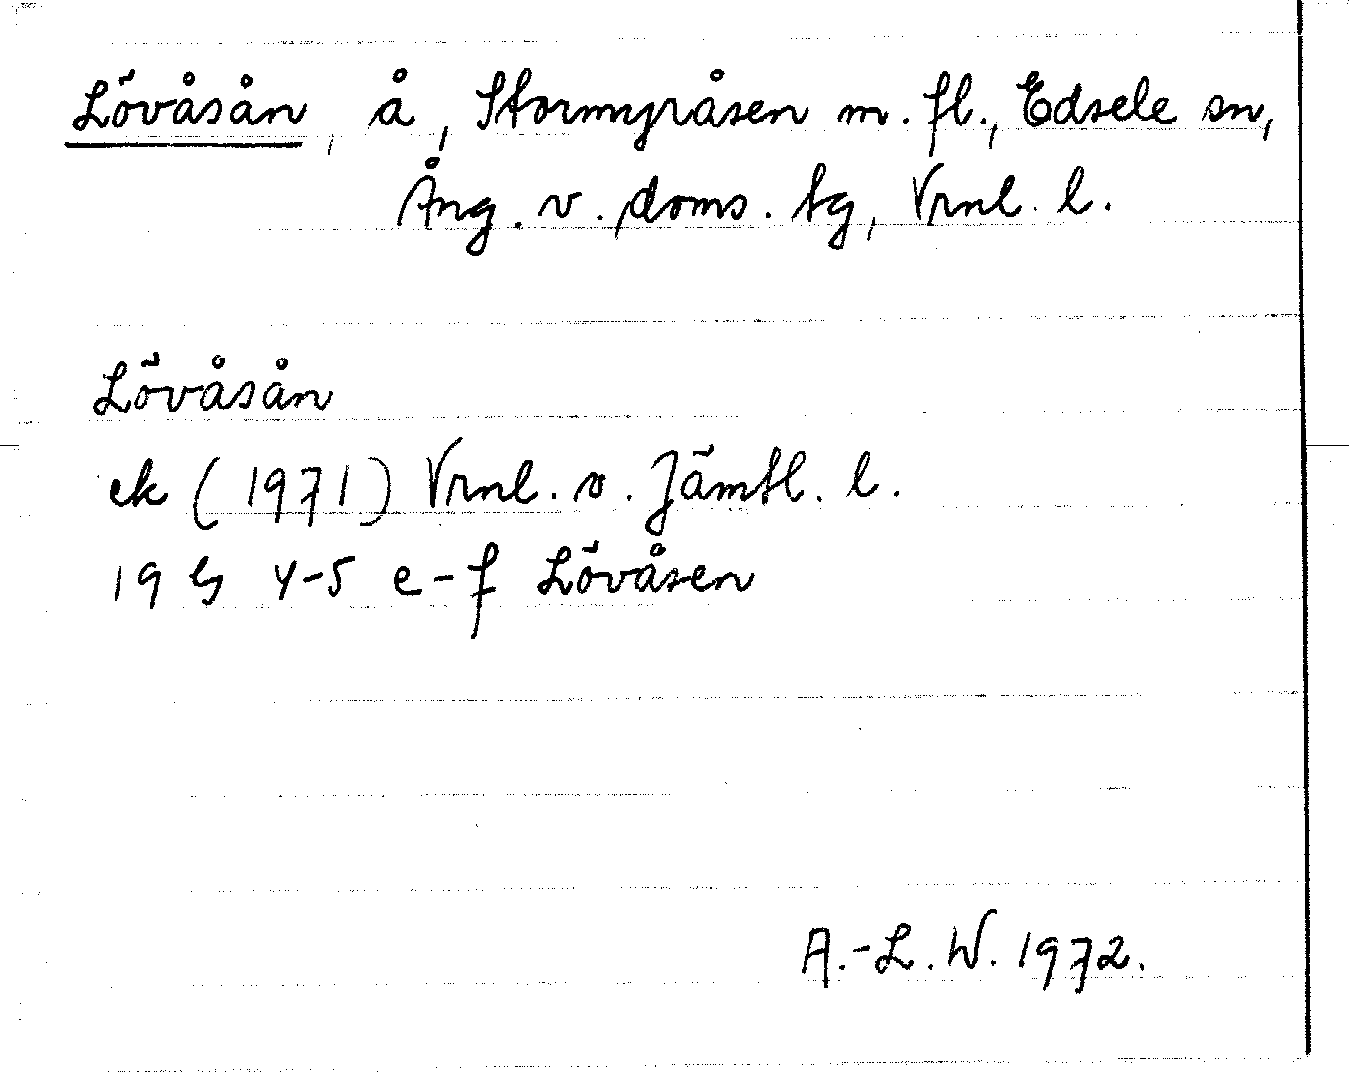 Lövåsån, å, Stormyråsen m. fl., Edsele sn,
Ång. v. doms. tg, Vrnl. l.
Lövåsån
ek (1971) Vrnl. o. Jämtl. l.
19 G 4-5 e-f Lövåsen
A.-L. W. 1972.